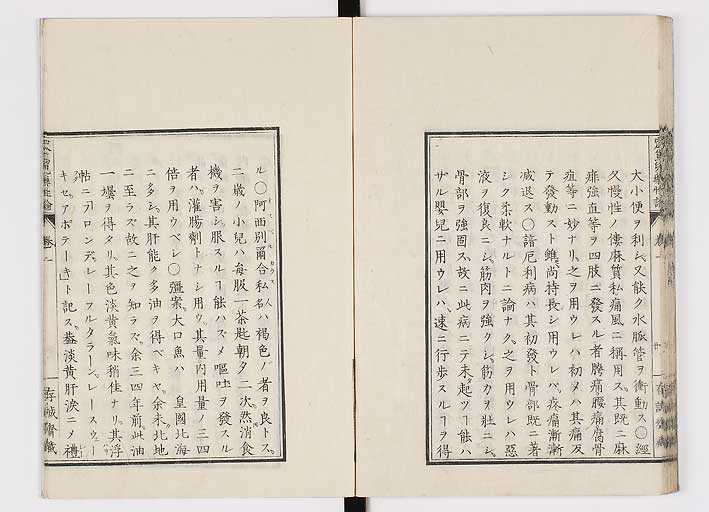 大小便ヲ利シ、又能ク水脈管ヲ衝動ス。〇經
久慢性ノ僂麻質私痛風ニ稱用ス。其既ニ麻
痺強直等ヲ四肢ニ發スル者、勝痛腰痛腐骨
疽等ニ妙ナリ、之ヲ用ウレハ初メハ其痛反
テ發動スト雖、尚持長シ用ウレハ、疼痛漸漸
減退ス。〇諳厄利病ハ其初發ト骨部既ニ著
シク柔軟ナルトニ論ナク、之ヲ用ウレハ惡
液ヲ復良ニシ、筋肉ヲ強クシ、筋力ヲ壯ニシ、
骨部ヲ強固ス、故ニ此病ニテ未タ起ツヿ能ハ
サル嬰兒ニ用ウレハ、速ニ行歩スルヿヲ得
ル〇阿西別爾合私名人ハ褐色ノ者ヲ良トス、
二歳ノ小兒ハ每服一茶匙朝夕二次、然消食
機ヲ害シ服スルヿ能ハス、嘔吐ヲ發スル
者ハ、灌腸劑トナシ用ウ、其量内用量ノ三四
倍ヲ用ウベシ〇彊案、大口魚ハ 皇國北海
ニ多シ、其肝能ク多油ヲ得ベキヤ、余未北地
ニ至ラズ、故ニ之ヲ知ラズ、余三四年前此油
一壜ヲ得タリ、其色淡黄氣味稍佳ナリ、其浮
帖ニデロンデレーフルタラーンレースウー
キセアポテーキト記ス、蓋淡黄肝涙ニノ禮
存誠齋藏